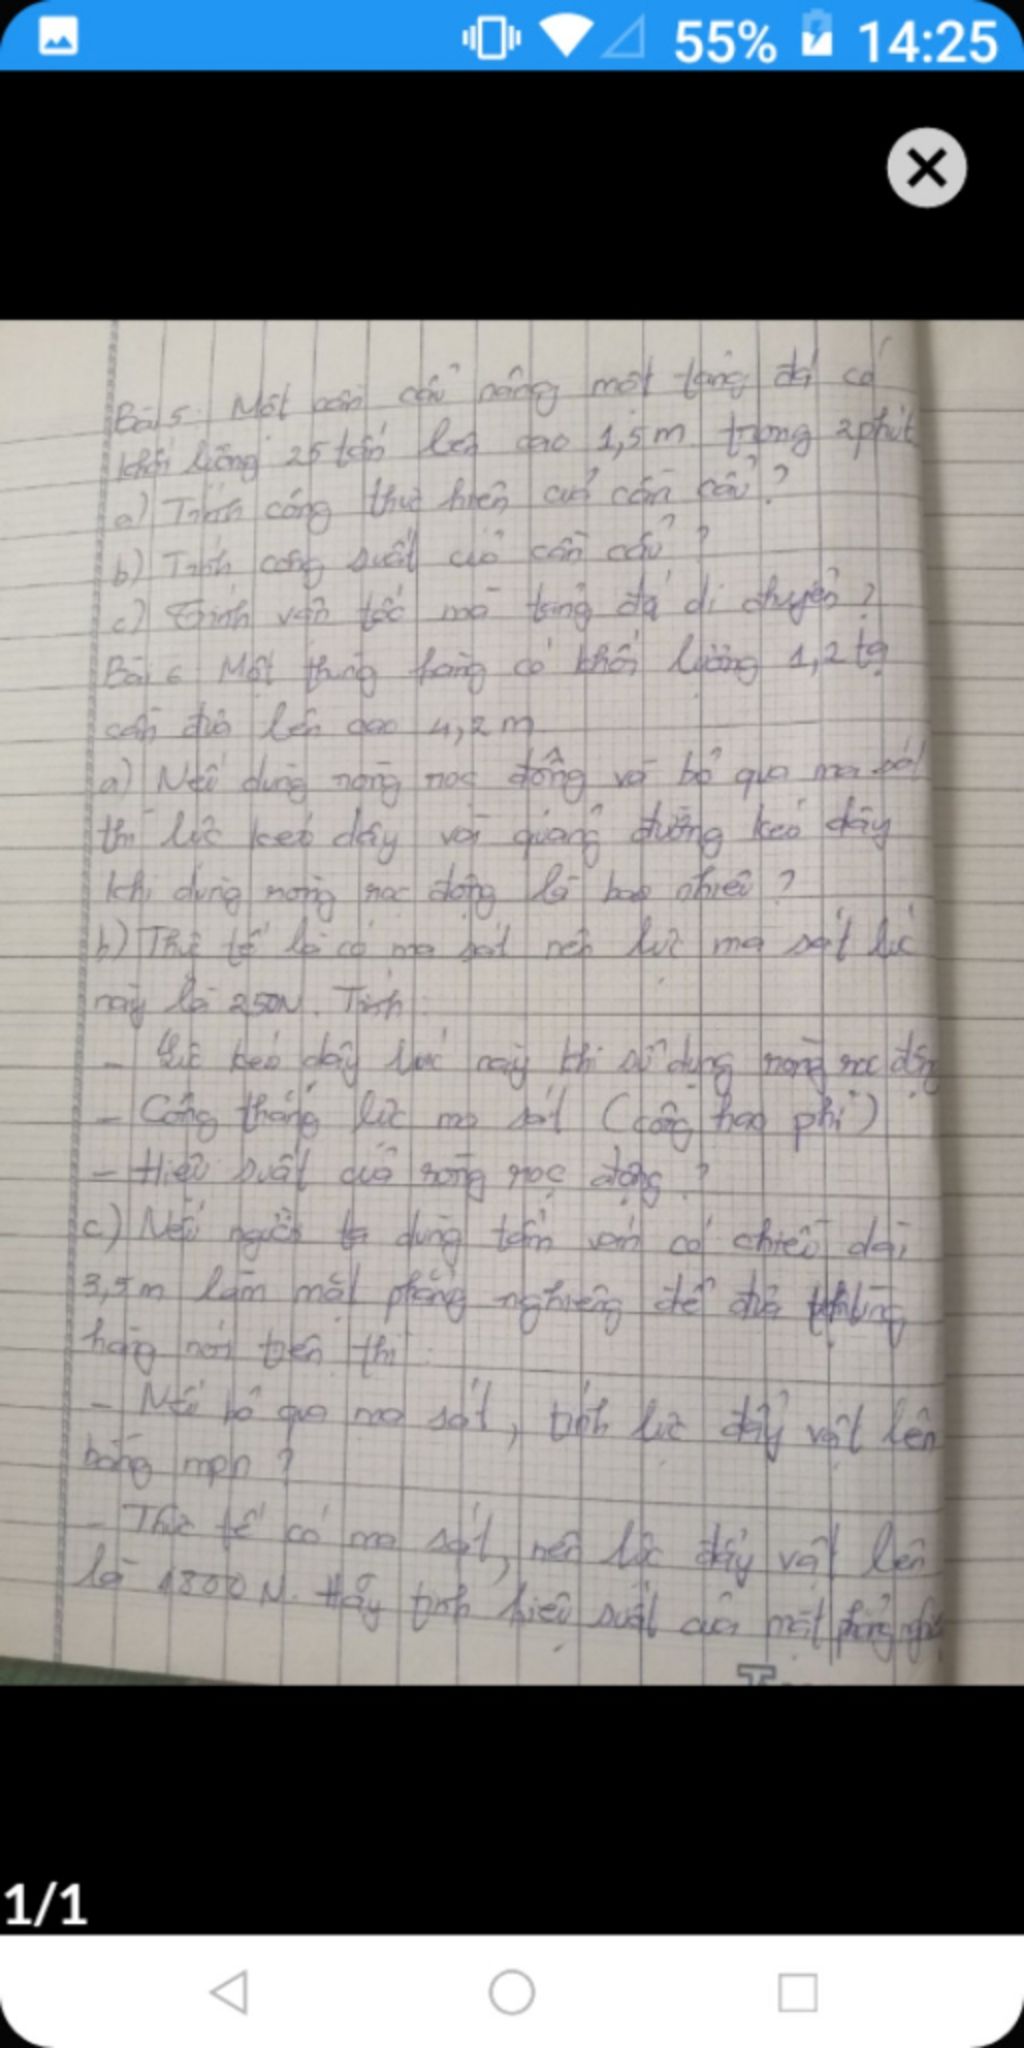 55% 14:25
Bài 5. Một cần cẩu nâng một tảng đá có
khối lượng 25 tấn lên cao 1,5m trong 2 phút
a) Tính công thực hiện của cần cẩu?
b) Tính công suất của cần cẩu?
c) Tính vận tốc mà tảng đá di chuyển?
Bài 6 Một thùng hàng có khối lượng 1,2 tạ
cần đưa lên cao 4,2m
a) Nếu dùng ròng rọc động và bỏ qua ma sát
thì lực kéo dây và quãng đường kéo dây
khi dùng ròng rọc động là bao nhiêu?
b) Thực tế là có ma sát nên lực ma sát lúc
này là 250N. Tính:
- Lực kéo dây lúc này khi sử dụng ròng rọc động
- Công thắng lực ma sát (công hao phí)
- Hiệu suất của ròng rọc động?
c) Nếu người ta dùng tấm ván có chiều dài
3,5m làm mặt phẳng nghiêng để đưa thùng
hàng nói trên thì:
- Nếu bỏ qua ma sát, tính lực đẩy vật lên
bằng mpn?
- Thực tế có ma sát, nên lực đẩy vật lên
là 1800N. Hãy tính hiệu suất của mặt phẳng
1/1